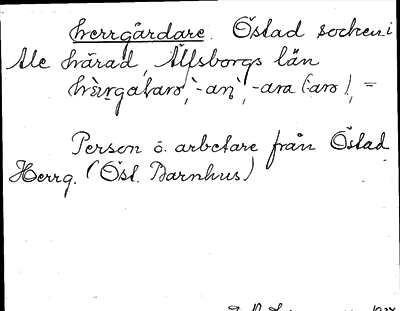 herrgårdare. Östad socken i
Ale härad, Älfsborgs län
-an, -ara (-aro), =
Person ö. arbetare från Östad
Herrg. (Öst. Barnhus)